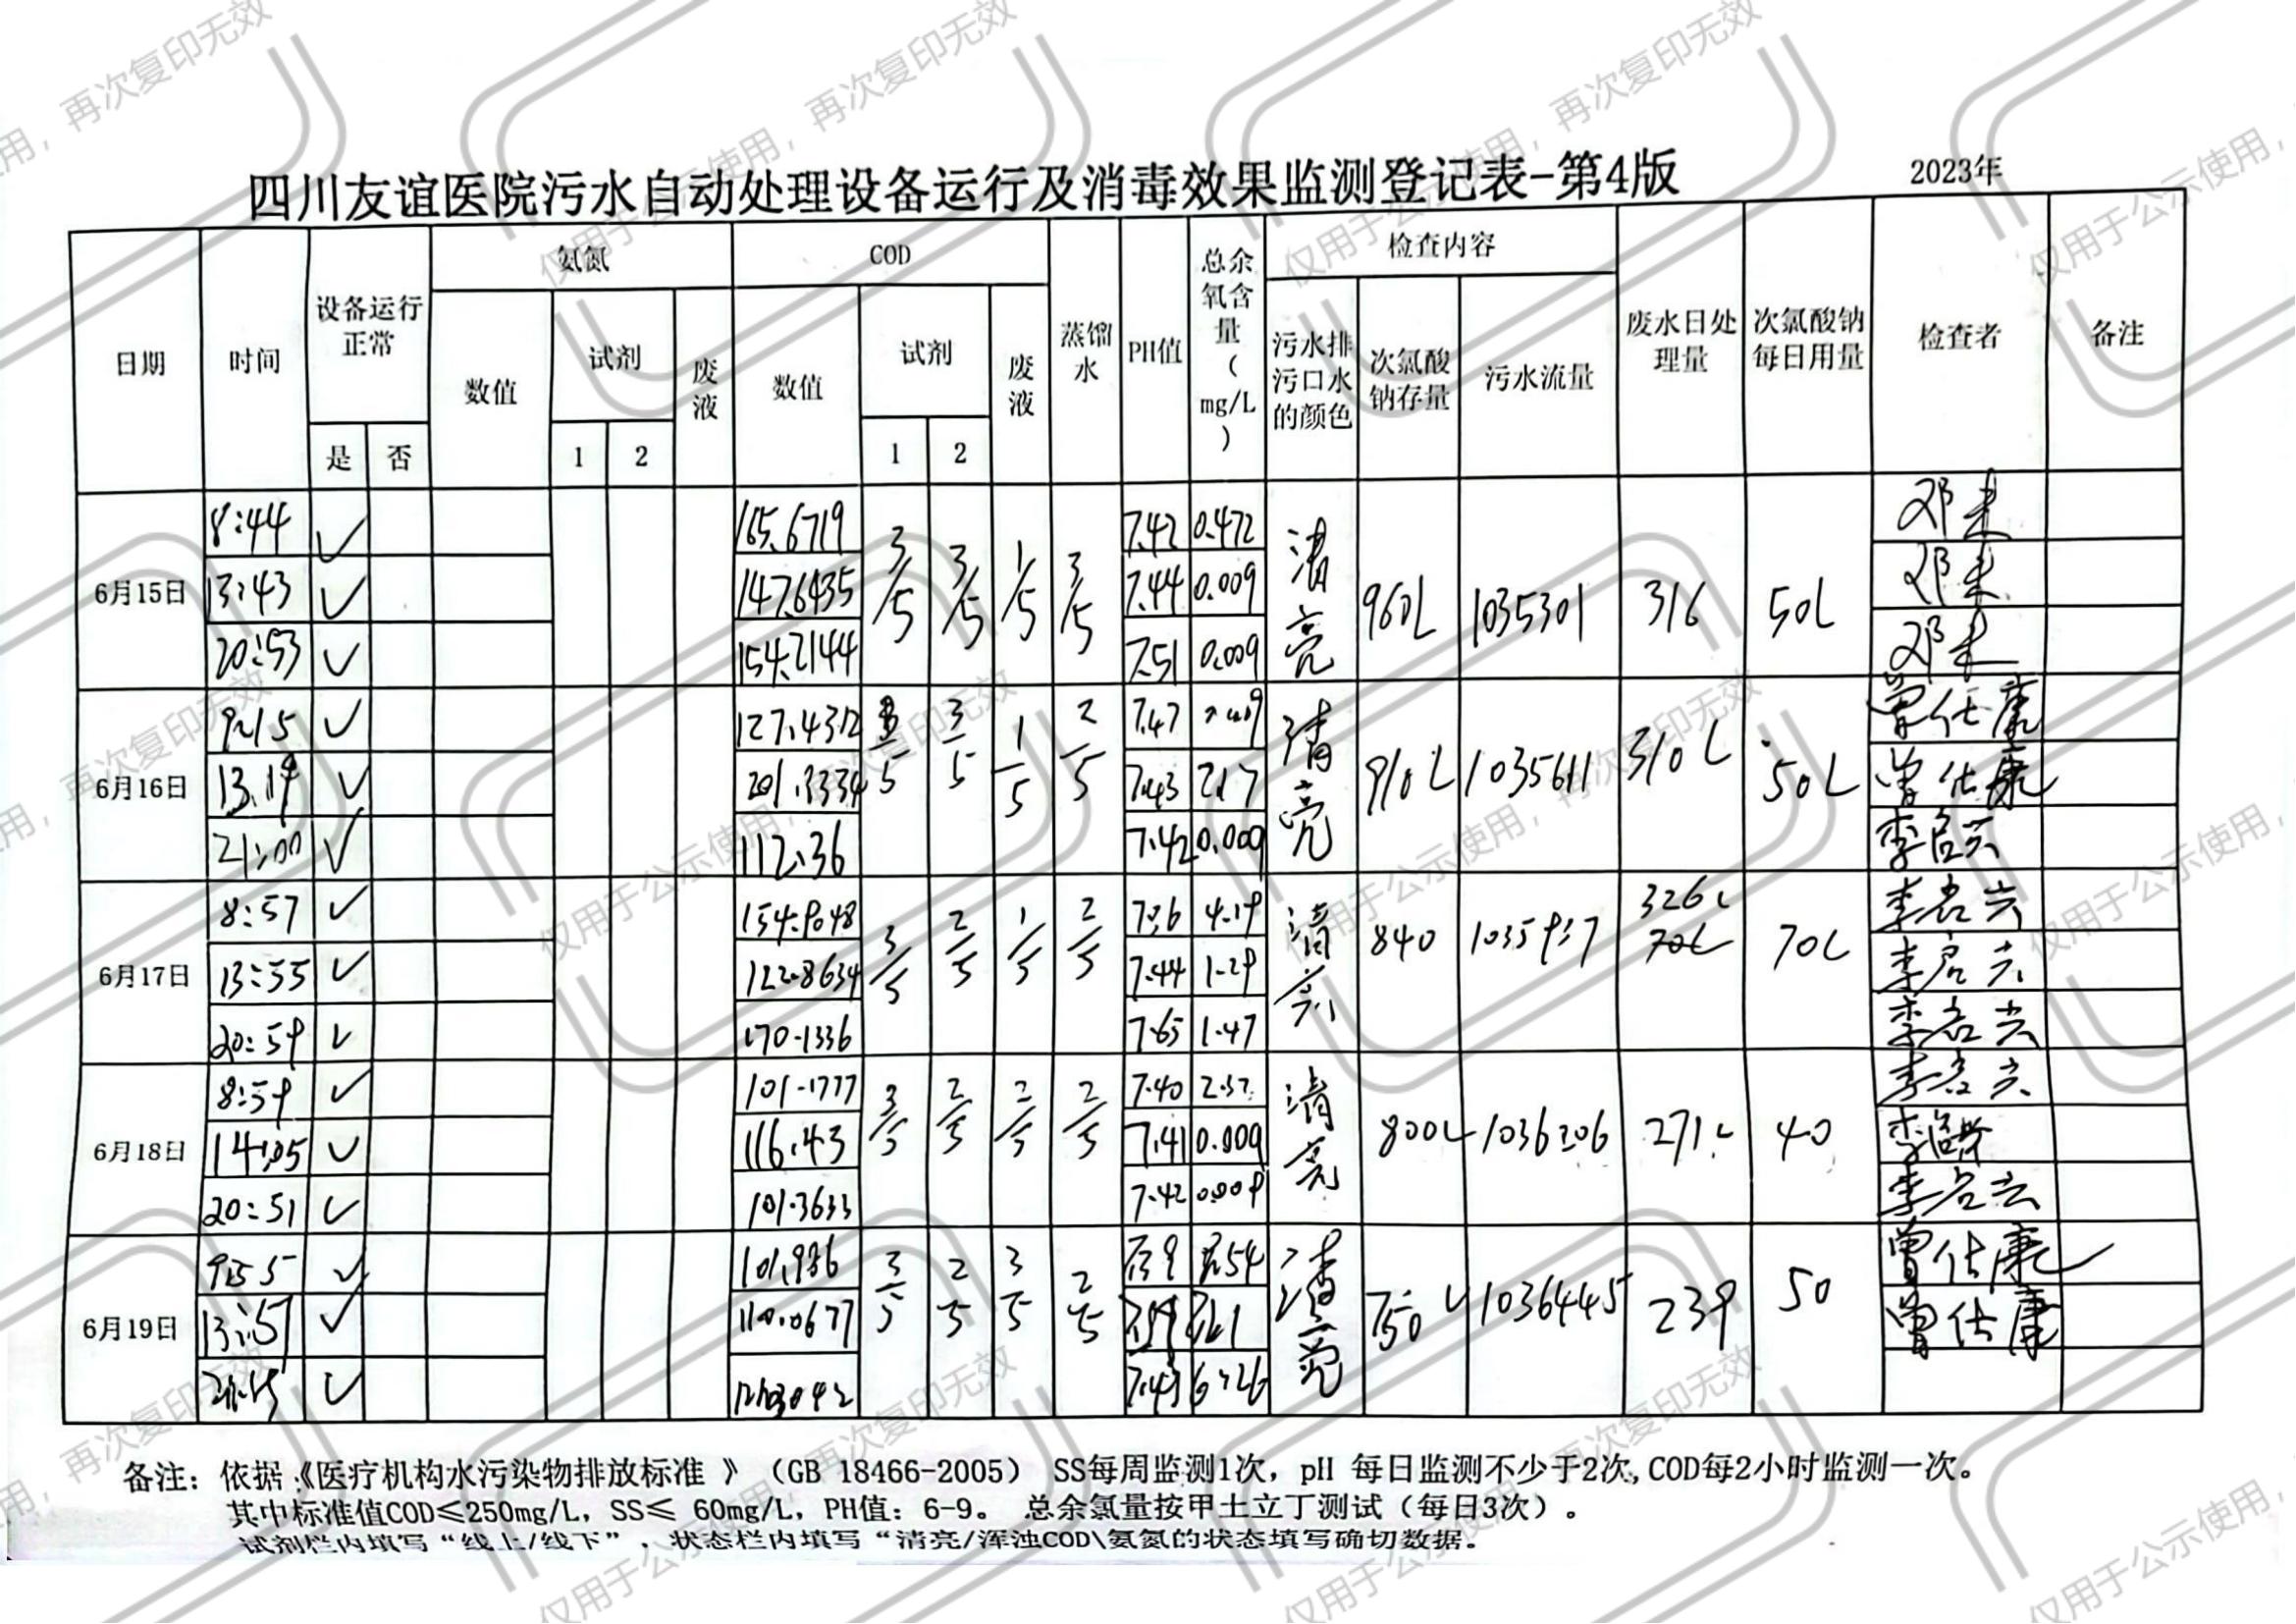 四川友谊医院污水自动处理设备运行及消毒效果监测登记表-第4版 2023年
日期 时间 设备运行正常 氨氮 COD 蒸馏水 PH值 总余氧含量(mg/L) 检查内容 废水日处理量 次氯酸钠每日用量 检查者 备注
数值 试剂 废液 数值 试剂 废液 污水排污口水的颜色 次氯酸钠存量 污水流量
是 否 1 2 1 2
6月15日 3/5 3/5 1/5 3/5 清亮 960L 1035301 316 50L
8:44 ✓ 165.6719 7.42 0.472 邓来
13:43 ✓ 147.6435 7.44 0.009 邓来
20:53 ✓ 154.2144 7.51 0.009 邓来
6月16日 3/5 1/5 2/5 清亮 910L 1035611 310L 50L
9:15 ✓ 127.4312 7.47 曾仕康
13:19 ✓ 201.3334 7.43 2.17 曾仕康
21:00 ✓ 112.36 7.42 0.009
6月17日 3/5 2/5 1/5 2/5 清亮 840 326L 70L 70L
8:57 ✓ 154.9048 4.19
13:55 ✓ 122.8634 7.44 1.29
20:59 ✓ 170.1336 7.65 1.47
6月18日 3/5 2/5 2/5 2/5 清亮 800L 1036206 271L 40
8:59 ✓ 101.1777 7.40 2.32
14:05 ✓ 116.43 7.41 0.009
20:51 ✓ 101.3633 7.42 0.009
6月19日 3/5 2/5 3/5 2/5 清亮 750L 1036445 239 50
9:55 ✓ 101.936 曾仕康
13:57 ✓ 110.0677 曾仕康
✓ 7.43 6.26
备注：依据《医疗机构水污染物排放标准 》（GB 18466-2005） SS每周监测1次，pH 每日监测不少于2次,COD每2小时监测一次。
其中标准值COD≤250mg/L，SS≤ 60mg/L，PH值：6-9。 总余氯量按甲土立丁测试（每日3次）。
试剂栏内填写“线上/线下”，状态栏内填写“清亮/浑浊COD\氨氮的状态填写确切数据。
仅用于公示使用，再次复印无效